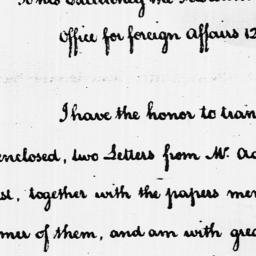 To His Excellency the
Office for foreign Affairs 12
I have the honor to tran
enclosed, two Letters from Mr. Ad
st, together with the papers men
mer of them, and am with grea